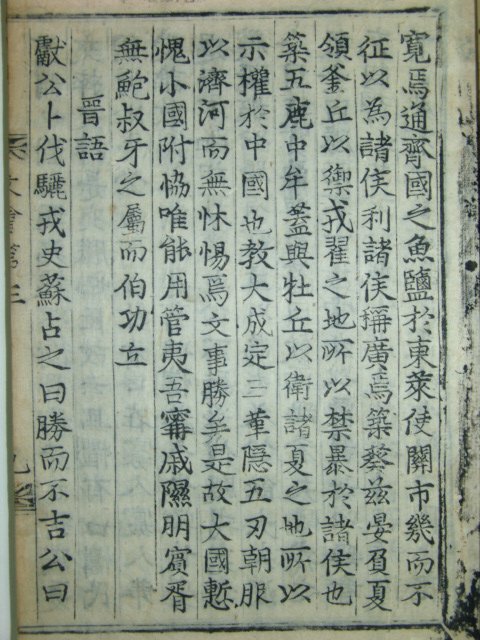 寬焉通齊國之魚鹽於東萊使關市幾而不
征以為諸侯利諸侯稱廣焉築葵茲晏負夏
領釜丘以禦戎翟之地所以禁暴於諸侯也
築五鹿中牟蓋與牡丘以衛諸夏之地所以
示權於中國也教大成定三革隱五刃朝服
以濟河而無怵惕焉文事勝矣是故大國慙
愧小國附恊唯能用管夷吾甯戚隰朋賓胥
無鮑叔牙之屬而伯功立
晉語
獻公卜伐驪戎史蘇占之曰勝而不吉公曰